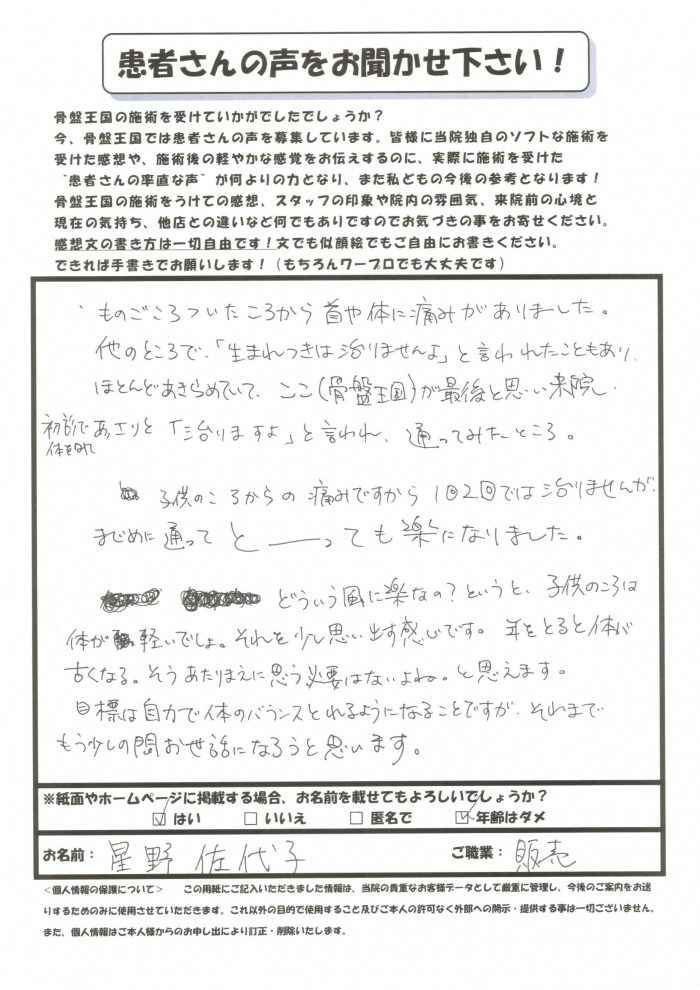 患者さんの声をお聞かせ下さい！
骨盤王国の施術を受けていかがでしたでしょうか？
今、骨盤王国では患者さんの声を募集しています。皆様に当院独自のソフトな施術を
受けた感想や、施術後の軽やかな感覚をお伝えするのに、実際に施術を受けた
"患者さんの率直な声"が何よりの力となり、また私どもの今後の参考となります！
骨盤王国の施術をうけての感想、スタッフの印象や院内の雰囲気、来院前の心境と
現在の気持ち、他店との違いなど何でもありですのでお気づきの事をお寄せください。
感想文の書き方は一切自由です！文でも似顔絵でもご自由にお書きください。
できれば手書きでお願いします！（もちろんワープロでも大丈夫です）
ものごころついたころから首や体に痛みがありました。
他のところで、「生まれつきは治りませんよ」と言われたこともあり、
ほとんどあきらめていて、ここ(骨盤王国)が最後と思い来院、
初診で体をみて あっさりと「治りますよ」と言われ、通ってみたところ。
子供のころからの痛みですから1回2回では治りませんが、
まじめに通って と——っても楽になりました。
どういう風に楽なの？というと、子供のころは
体が軽いでしょ。それを少し思い出す感じです。年をとると体が
古くなる。そうあたりまえに思う必要はないよね。と思えます。
目標は自力で体のバランスとれるようになることですが、それまで
もう少しの間お世話になろうと思います。
※紙面やホームページに掲載する場合、お名前を載せてもよろしいでしょうか？
☑ はい □ いいえ □ 匿名で ☑ 年齢はダメ
お名前： 星野 佐代子 ご職業： 販売
<個人情報の保護について> この用紙にご記入いただきました情報は、当院の貴重なお客様データとして厳重に管理し、今後のご案内をお送
りするためのみに使用させていただきます。これ以外の目的で使用すること及びご本人の許可なく外部への開示・提供する事は一切ございません。
また、個人情報はご本人様からのお申し出により訂正・削除いたします。